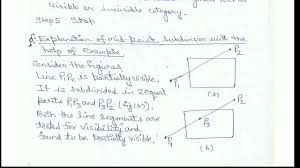 visible or invisible category.
Step5 Stop
Q- Explanation of mid-point subdivision with the
help of example
Consider the figures
Line P1P2 is partially visible.
It is subdivided in 2 equal
parts P1P3 and P3P2 (fig(b)).
Both the line segments are
tested for visibility and
found to be partially visible.
P2
P1
(a)
P2
P3
P1
(b)